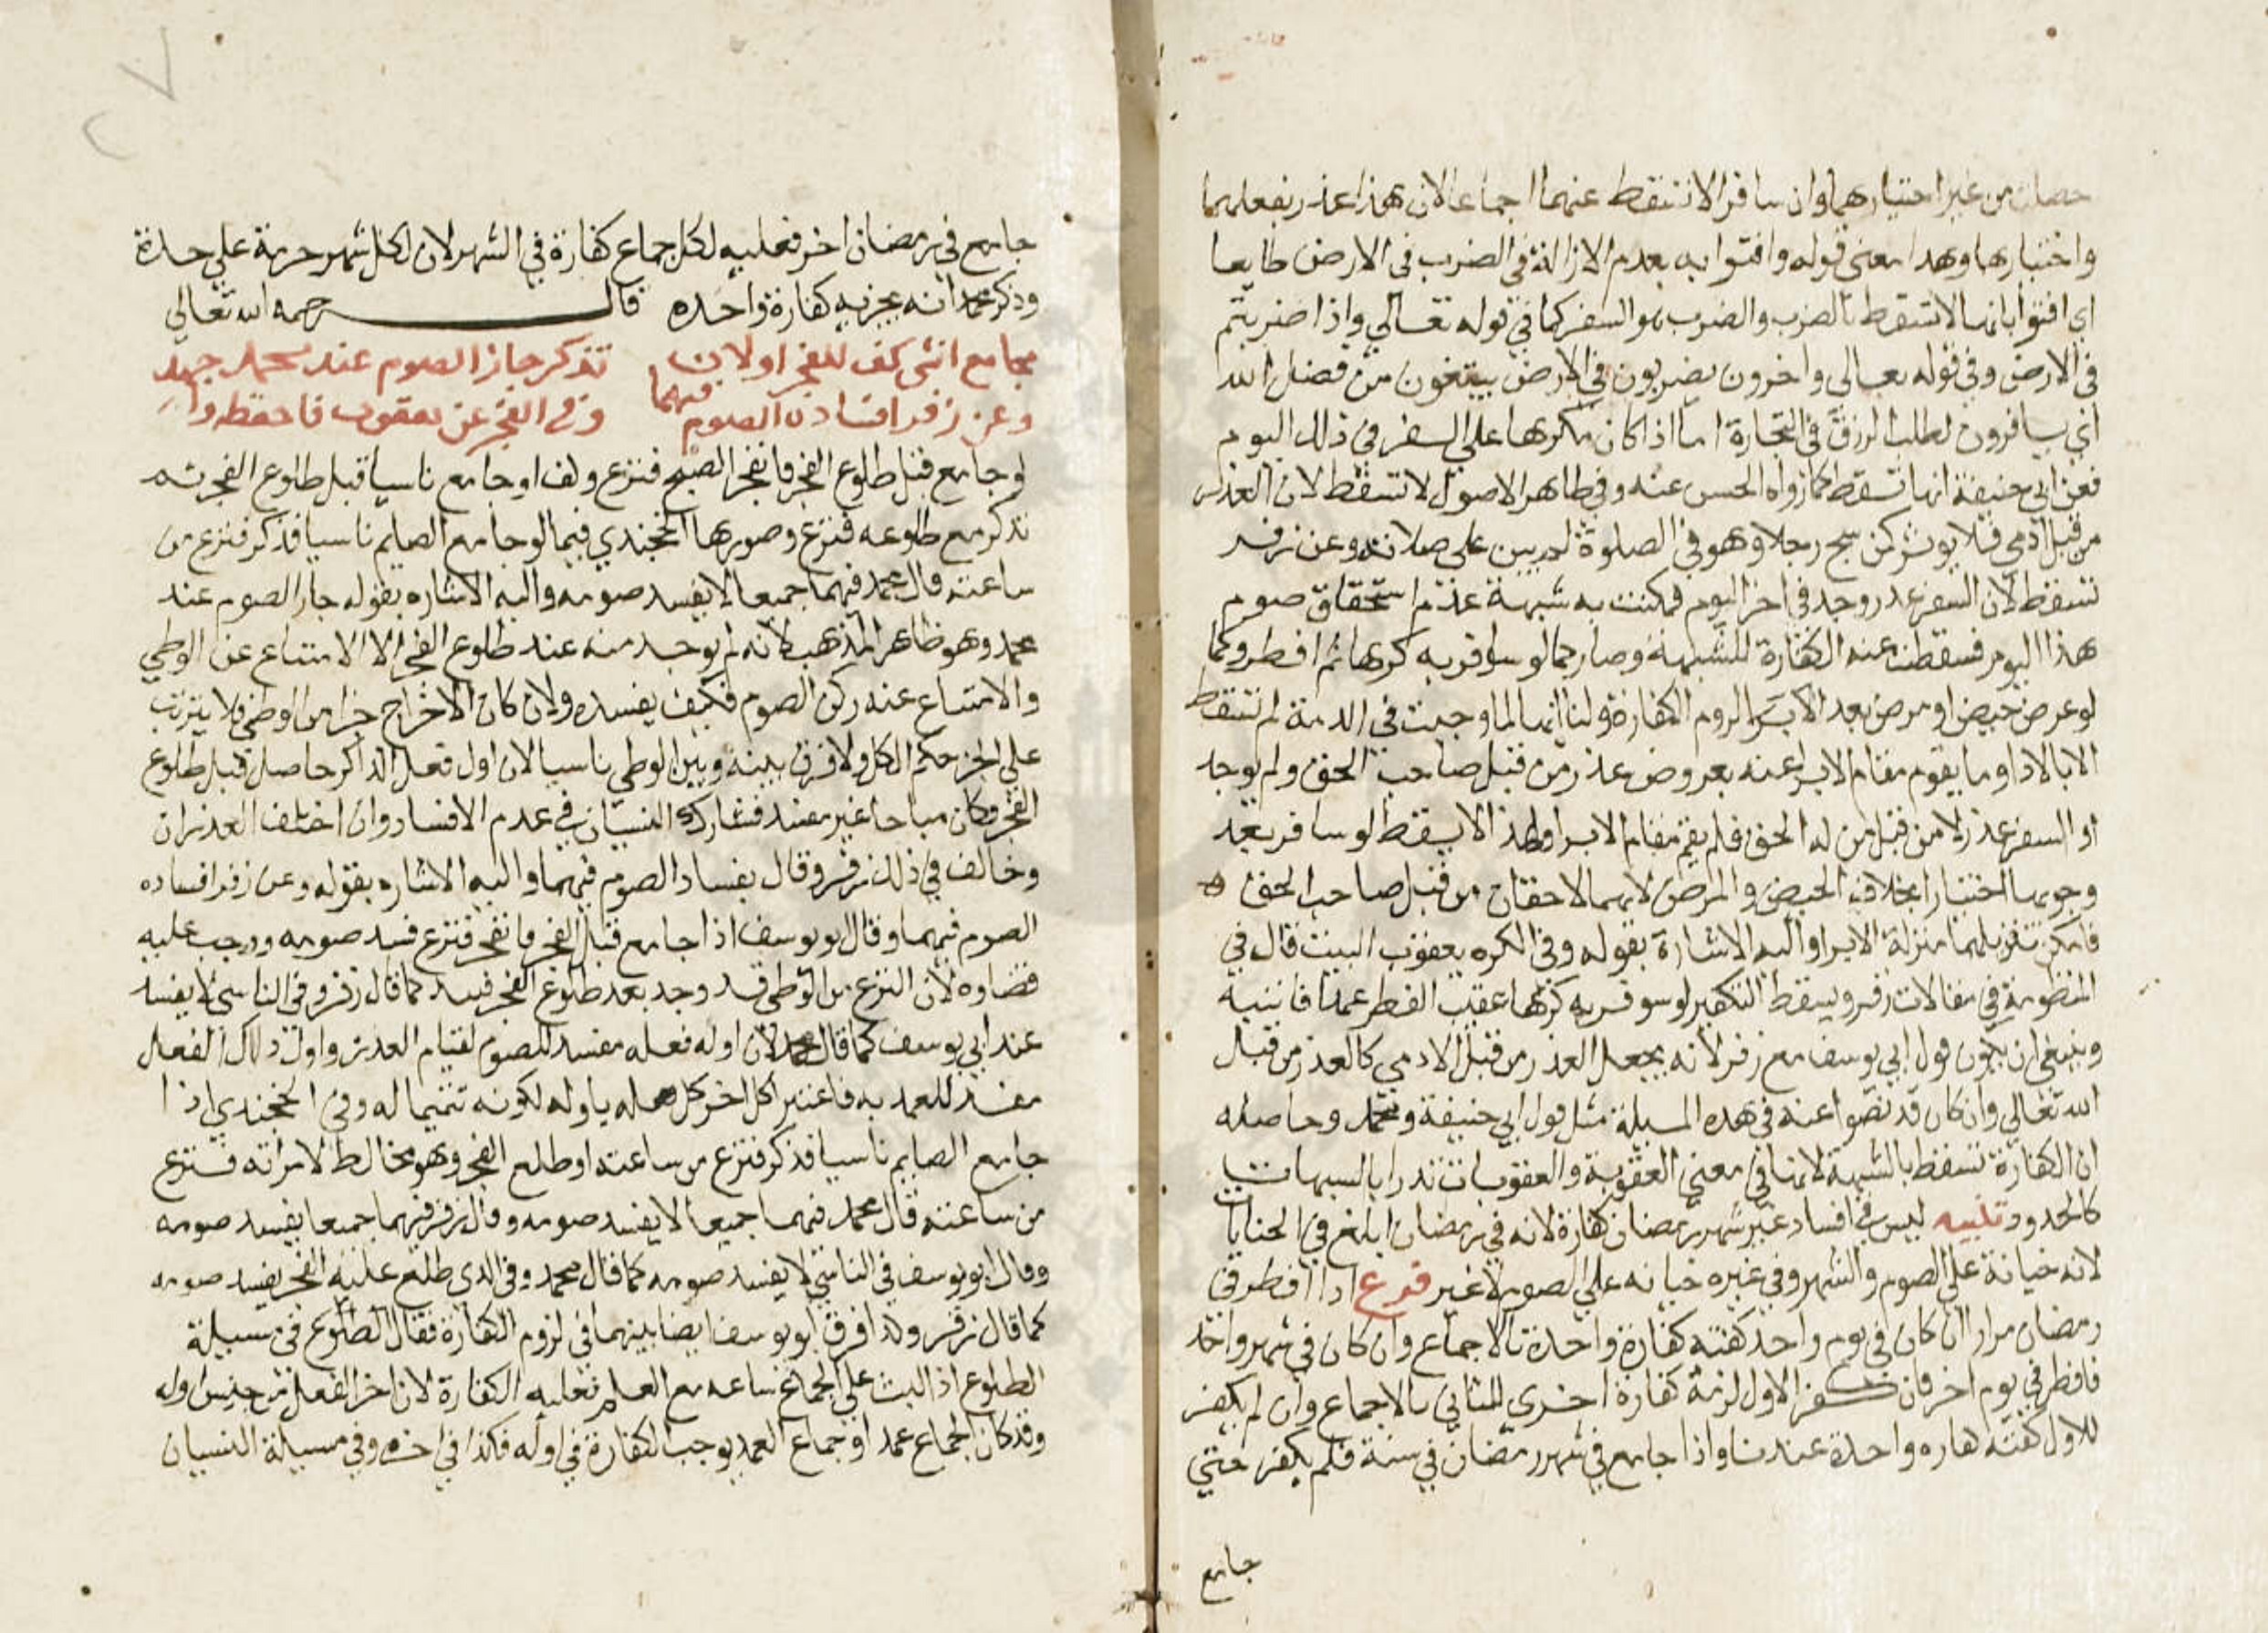 حصلت من غير اختيارهما وان سافر الا تسقط عنهما اجماعا لان هذا عذر بفعلهما
واختيارهما وهذا معنى قوله وافتوا به بعدم الازالة في الضرب في الارض طايعا
اي افتوا بانها لا تسقط بالضرب والضرب هو السفر كما في قوله تعالي واذا ضربتم
في الارض وفي قوله تعالى واخرون يضربون في الارض يبتغون من فضل الله
اي يسافرون لطلب الرزق في التجارة اما اذا كان مكرها على السفر في ذلك اليوم
فعن ابي حنيفة انها تسقط كما رواه الحسن عنه وفي ظاهر الاصول لا تسقط لان العذر
من قبل آدمي فلا يوثر كمن شج رجلا وهو في الصلوة لم يبن على صلاته وعن زفر
تسقط لان السفر عذر وجد في اخر اليوم فمكنت به شبهة عدم استحقاق صوم
هذا اليوم فسقطت عنه الكفارة للشبهة وصار كما لو سوفر به كرها ثم افطر وكما
لو عرض حيض او مرض بعد لزوم الكفارة ولنا انها لما وجبت في الذمة لم تسقط
الا بالاداء وما يقوم مقام الابرا عنه بعروض عذر من قبل صاحب الحق ولم يوجد
اذ السفر عذر لا من قبل من له الحق فلم يقم مقام الابرا ولهذا لا يسقط لو سافر بعد
وجوبها اختيارا بخلاف الحيض والمرض لانهما لاحقان من قبل صاحب الحق
فامكن تنزيلهما منزلة الابرا واليه الاشارة بقوله وفي الكره يعقوب البيت قال في
المنظومة في مقالات زفر ويسقط التكفير لو سوفر به كرها عقيب الفطر عمدا فانتبه
وينبغي ان يكون قول ابي يوسف مع زفر لانه يجعل العذر من قبل الادمي كالعذر من قبل
الله تعالي وان كان قد نصوا عنه في هذه المسيلة مثل قول ابي حنيفة ومحمد وحاصله
ان الكفارة تسقط بالشبهة لانها في معنى العقوبة والعقوبات تندرا بالشبهات
كالحدود تنبيه ليس في افساد غير شهر رمضان كفارة لانه في رمضان ابلغ في الجنايات
لانه خيانة على الصوم والشهر وفي غيره خيانه على الصوم لا غير فرع اذا افطر في
رمضان مرارا ان كان في يوم واحد كفته كفارة واحدة بالاجماع وان كان في شهر واحد
فافطر في يوم اخر فان كفر الاول لزمه كفارة اخري للثاني بالاجماع وان لم يكفر
للاول كفته كفاره واحدة عندنا واذا جامع في شهر رمضان في سنة فلم يكفر حتي
جامع
جامع في رمضان اخر فعليه لكل جماع كفارة في الشهر لان لكل شهر حرمة علي حدة
وذكر محمد انه يجزيه كفارة واحده قال رحمه الله تعالي
مجامع انثى كف للفجر اولان تذكر جاز الصوم عند محمد
وعن زفر افساده الصوم فيهما وفي الفجر عن يعقوب فاحفظه
لو جامع قبل طلوع الفجر فانفجر الصبح فنزع وكف او جامع ناسيا قبل طلوع الفجر ثم
تذكر مع طلوعه فنزع وصورها الخجندي فيما لو جامع الصايم ناسيا فذكر فنزع من
ساعته قال محمد فيهما جميعا لا يفسد صومه واليه الاشاره بقوله جاز الصوم عند
محمد وهو ظاهر المذهب لانه لم يوجد منه عند طلوع الفجر الا الامتناع عن الوطي
والامتناع عنه ركن الصوم فكيف يفسده ولان كان الاخراج جزا من الوطي فلا يترتب
علي الجز حكم الكل ولا فرق بينه وبين الوطي ناسيا لان اول فعل الذاكر حاصل قبل طلوع
الفجر وكان مباحا غير مفسد فشارك النسيان في عدم الافساد وان اختلف العذران
وخالف في ذلك زفر وقال بفساد الصوم فيهما واليه الاشاره بقوله وعن زفر افساده
الصوم فيهما وقال بو يوسف اذا جامع قبل الفجر وانفجر فنزع فسد صومه ووجب عليه
قضاوه لان النزع من الوطي قد وجد بعد طلوع الفجر فيفسد كما قال زفر وفي الناسي لا يفسد
عند ابي يوسف كما قال محمد لان اوله فعله مفسد للصوم لقيام العذر واول ذلك الفعل
مفسد للعمد به فاعتبر اكل اخر كل فعله باوله لكونه تتميما له وفي الخجندي اذا
جامع الصايم ناسيا فذكر فنزع من ساعته او طلع الفجر وهو مخالط لامراته فنزع
من ساعته قال محمد فيهما جميعا لا يفسد صومه وقال زفر فيهما جميعا يفسد صومه
وقال ابو يوسف في الناسي لا يفسد صومه كما قال محمد وفي الذي طلع عليه الفجر يفسد صومه
كما قال زفر وله افرق ابو يوسف ايضا بينهما في لزوم الكفارة فقال الطلوع في مسيلة
الطلوع اذا لبث علي الجماع ساعه مع العلم فعليه الكفارة لان اخر الفعل من جنس اوله
وقد كان الجماع عمد او جماع العمد يوجب الكفارة في اوله فكذا في اخره وفي مسيلة النسيان